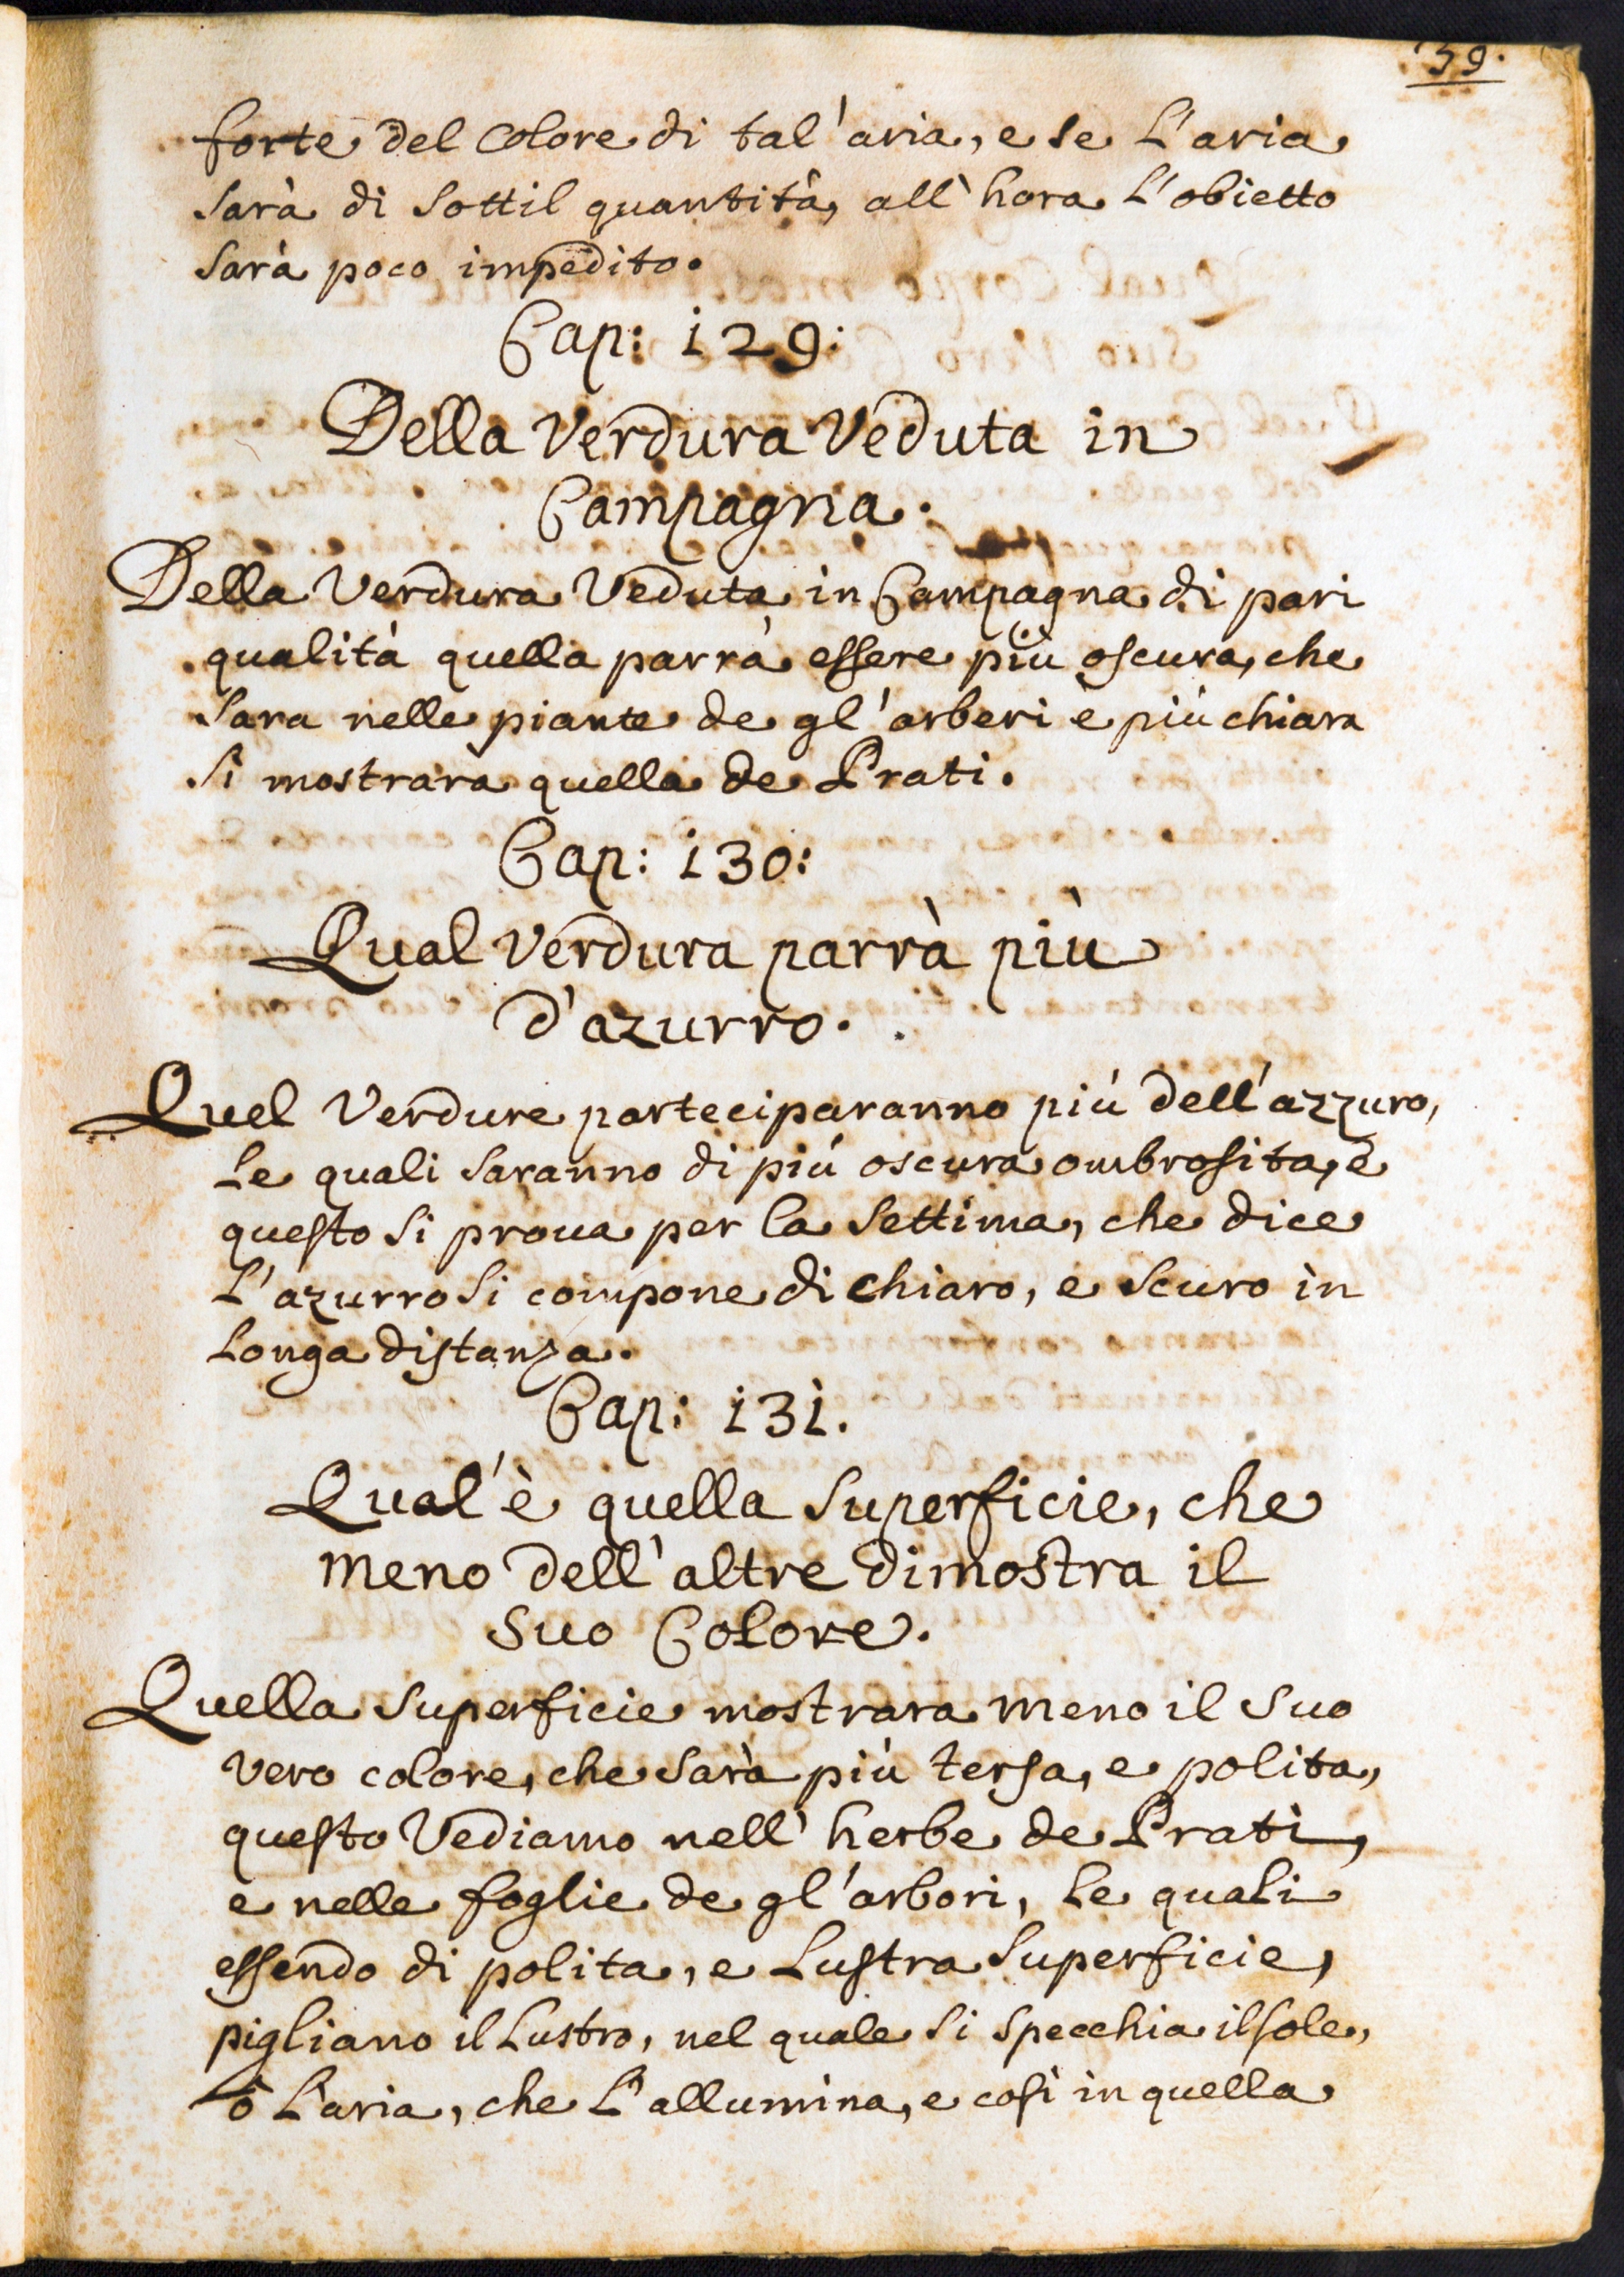 39.
forte del Colore di tal'aria, e se L'aria
sarà di sottil quantità, all'hora L'obietto
sarà poco impedito.
Cap: 129:
Della Verdura Veduta in
Campagna.
Della Verdura Veduta in Campagna di pari
qualità quella parrà essere più oscura, che
sara nelle piante de gl'arberi è più chiara
si mostrara quella de Prati.
Cap: 130:
Qual Verdura parrà più
d'azurro.
Quel Verdure parteciparanno più dell'azzuro,
Le quali saranno di più oscura ombrosita, è
questo si proua per la settima, che dice
L'azurro si compone di chiaro, e scuro in
Longa distanza.
Cap: 131.
Qual'è quella superficie, che
meno dell'altre dimostra il
suo Colore.
Quella superficie mostrara meno il suo
vero colore, che sarà più tersa, e polita,
questo Vediamo nell'herbe de Prati,
e nelle foglie de gl'arbori, Le quali
essendo di polita, e Lustra superficie,
pigliano il Lustro, nel quale si specchia il sole,
ò L'aria, che L'allumina, e così in quella